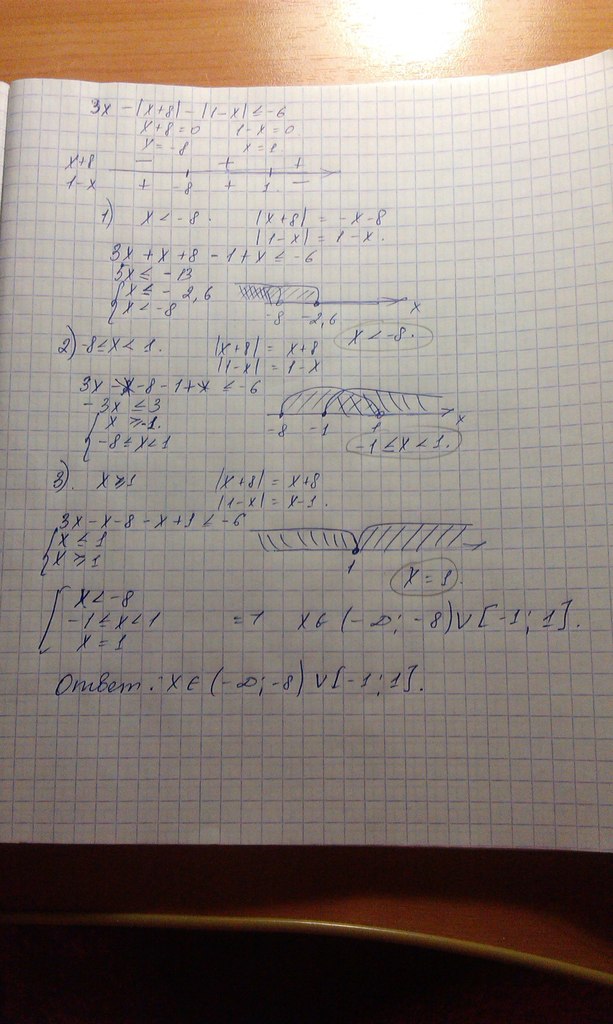 3x - |x+8| - |1-x| ≤ -6
x+8=0 1-x=0
x=-8 x=1
x+8 - + +
1-x + -8 + 1 -
1) x < -8. |x+8| = -x-8
|1-x| = 1-x.
3x + x + 8 - 1 + x ≤ -6
5x ≤ -13
x ≤ -2,6
x < -8
-8 -2,6 x
x < -8.
2) -8≤x<1. |x+8| = x+8
|1-x| = 1-x
3x - x - 8 - 1 + x ≤ -6
-3x ≤ 3
x ≥ -1.
-8≤x<1
-8 -1 1 x
-1≤x<1.
3). x≥1 |x+8| = x+8
|1-x| = x-1.
3x - x - 8 - x + 1 ≤ -6
x ≤ 1
x ≥ 1
1
x = 1.
x < -8
-1≤x<1
x = 1
=> x∈(-∞; -8)∨[-1; 1].
Ответ: x∈(-∞; -8)∨[-1; 1].